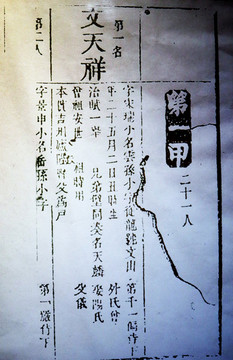 第一甲 二十一人
第一名
文天祥
字宋瑞小名雲孫小字從龍號文山 第千一偏侍下
年二十五月二日丑時生 外氏曾
治賦一舉 兄弟璧同奏名天麟 陽氏
曾祖安世 祖時用 父儀
本貫吉州廬陵縣父為戶
第二人
字景申小名孫小字 第一 嚴侍下